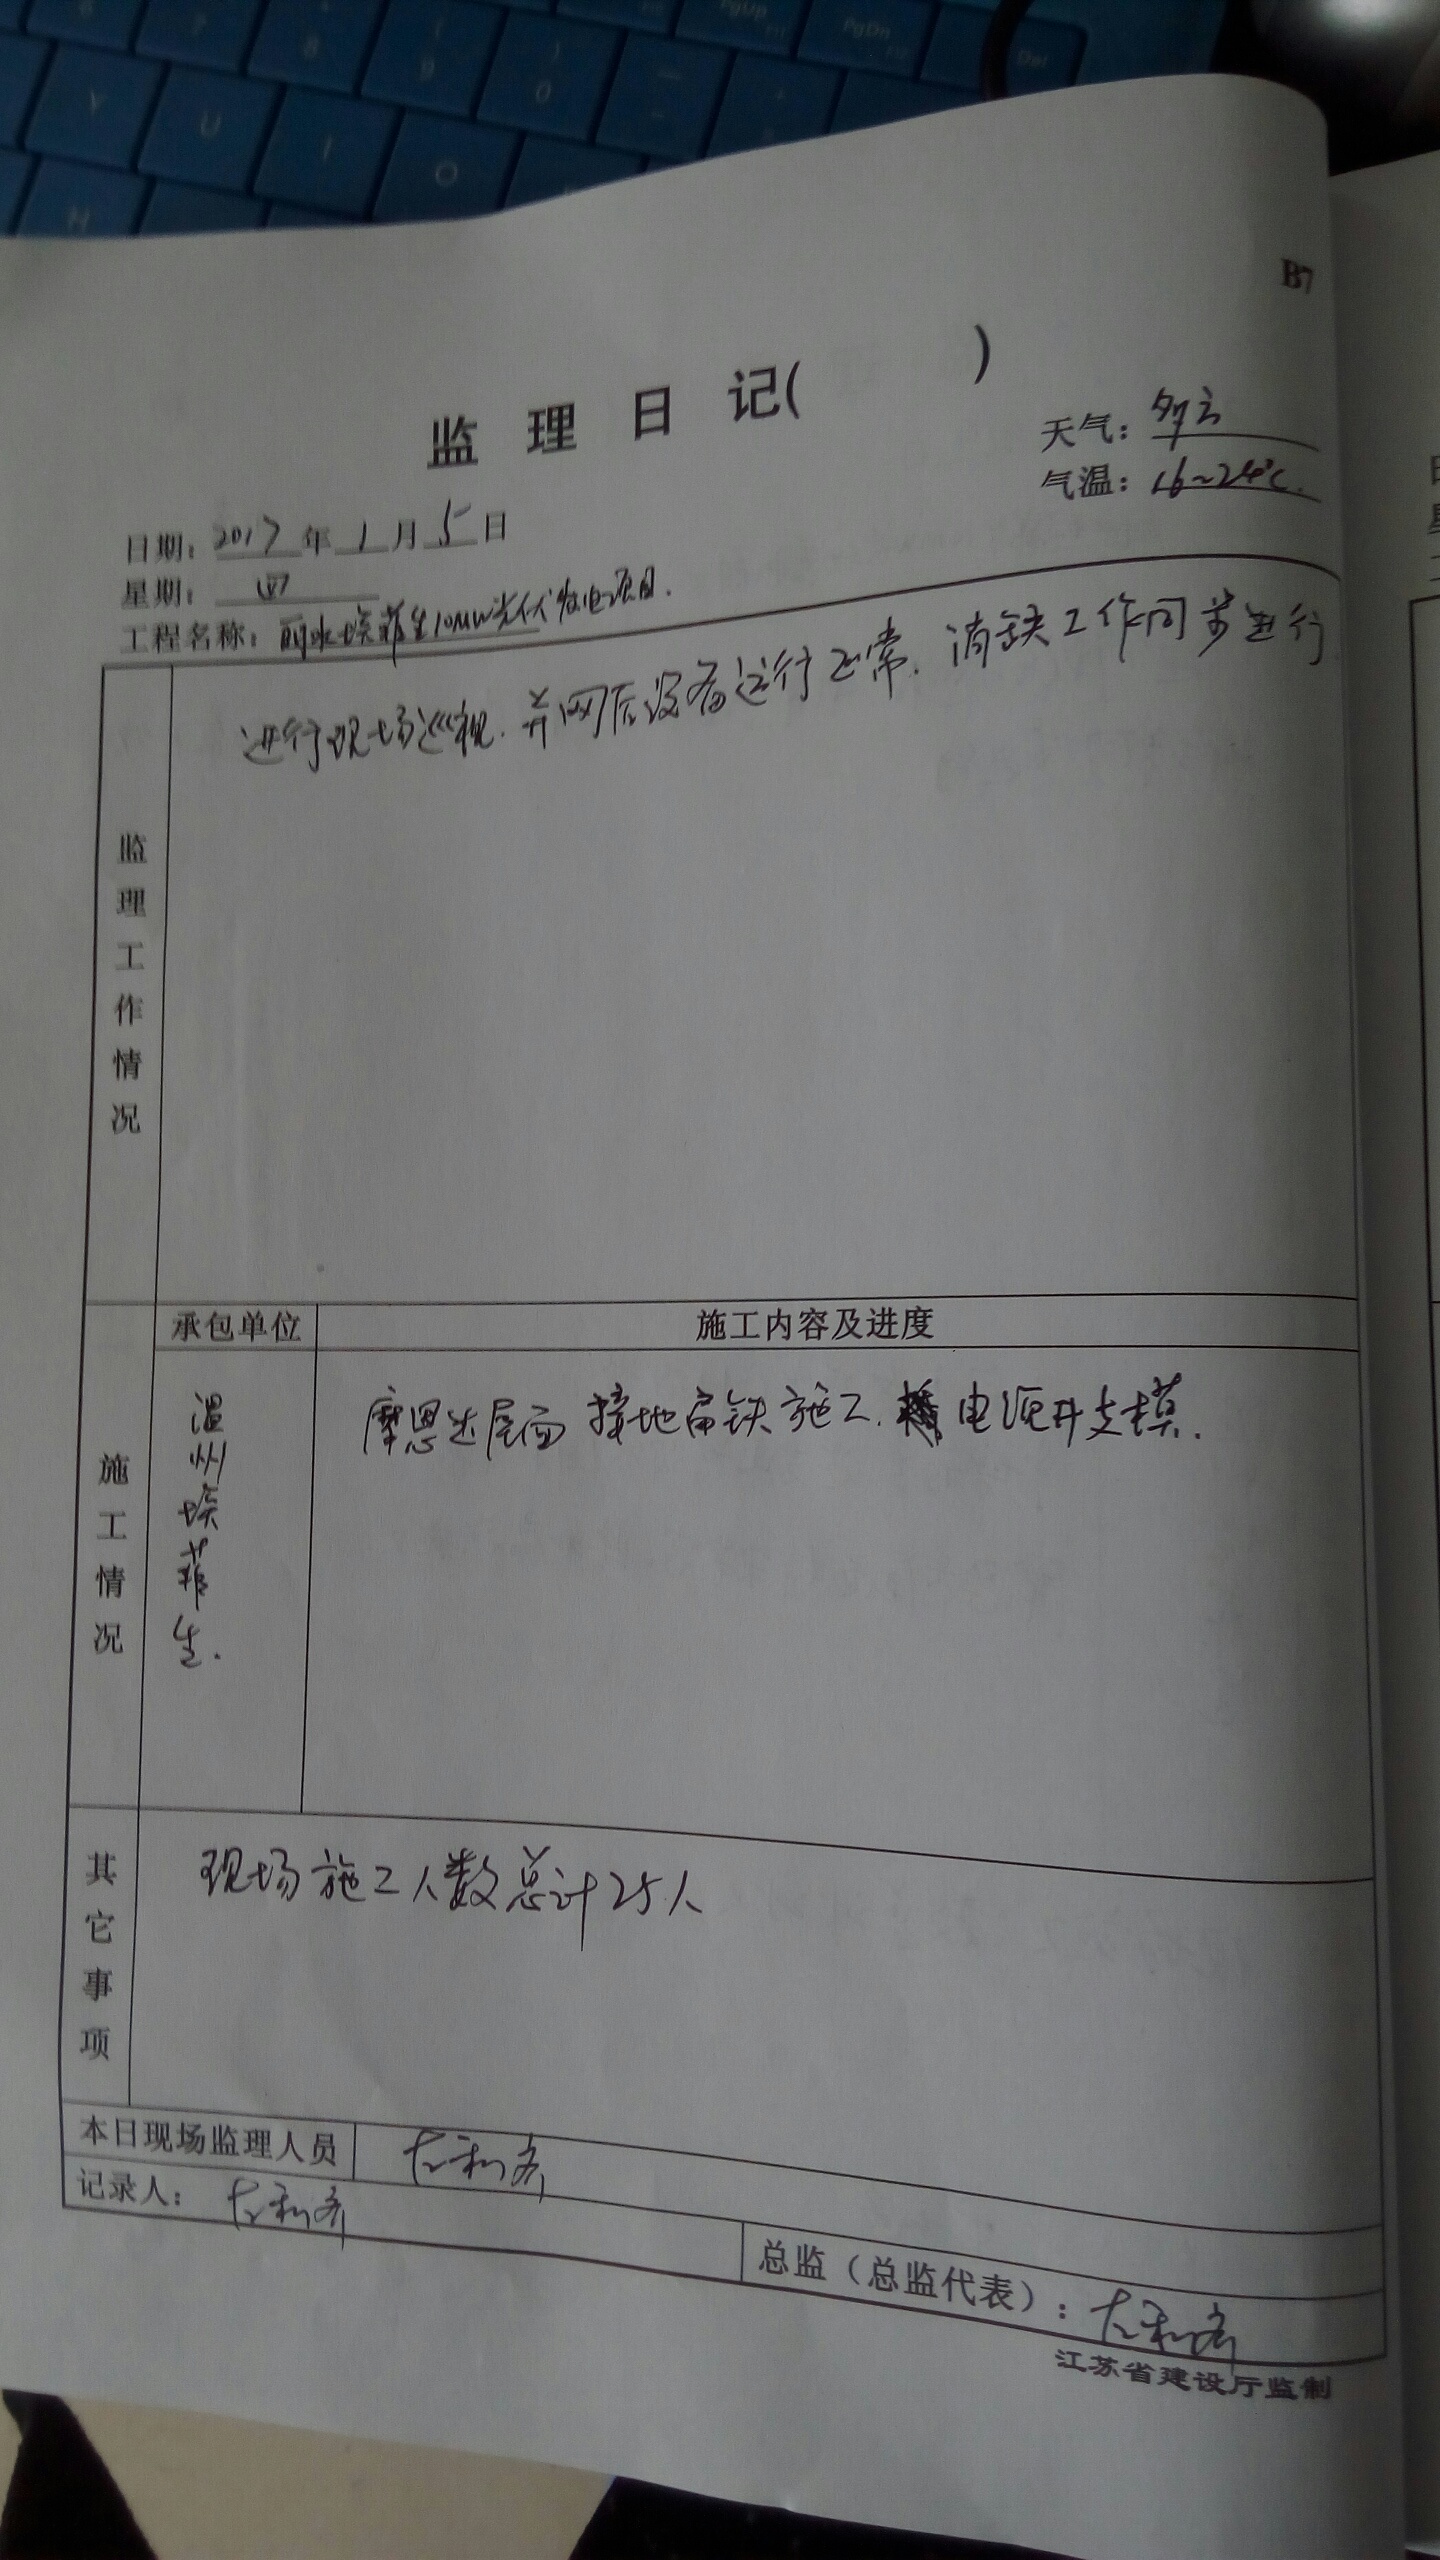 B7
监理日记( )
天气：多云
气温：16~24℃.
日期：2017年1月5日
星期：四
工程名称：丽水埃菲生10MW光伏发电项目.
监理工作情况
进行现场巡视.并网后设备运行正常.消缺工作同步进行
承包单位
施工内容及进度
施工情况
温州埃菲生.
摩恩达屋面接地扁铁施工. 电源井支模.
其它事项
现场施工人数总计25人
本日现场监理人员
记录人：
总监（总监代表）：
江苏省建设厅监制